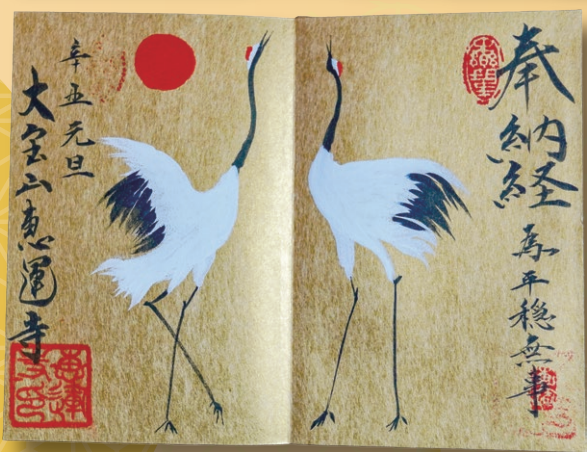 奉納経
為平穏無事
辛丑元旦
大宝山恵運寺